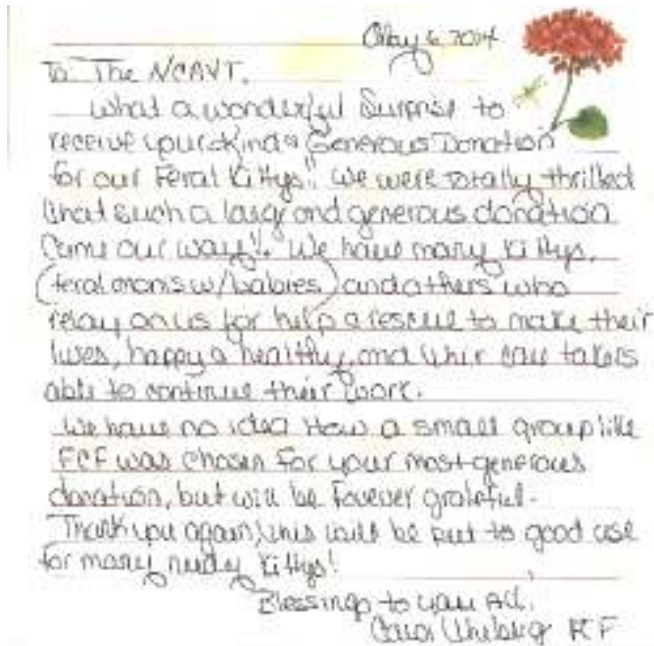 May 6, 2014
To: The NCAVT,
What a wonderful Surprise to
receive your kind & Generous Donation
for our Feral Kittys!! We were totally thrilled
that such a large and generous donation
came our way!! We have many Kittys,
(feral moms w/babies) and others who
relay on us for help & rescue to make their
lives, happy & healthy, and their care takers
able to continue their work.
We have no idea How a small group like
FCF was chosen for your most generous
donation, but will be forever grateful.
Thank you again, this will be put to good use
for many needy Kittys!
Blessings to you All,
Carol FCF